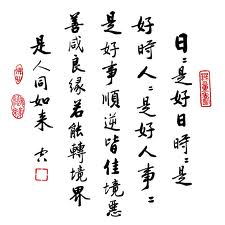 日〻是好日時〻是
好時人〻是好人事〻
是好事順逆皆佳境惡
善咸良緣若能轉境界
是人同如來